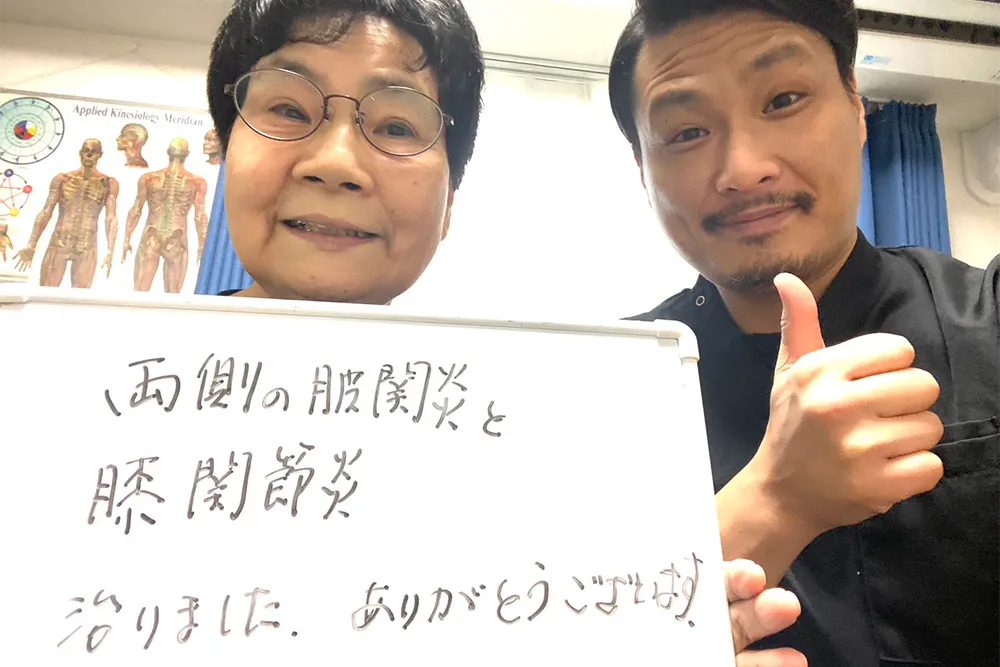 Applied Kinesiology Meridian
両側の股関炎と
膝関節炎
治りました. ありがとうございます.